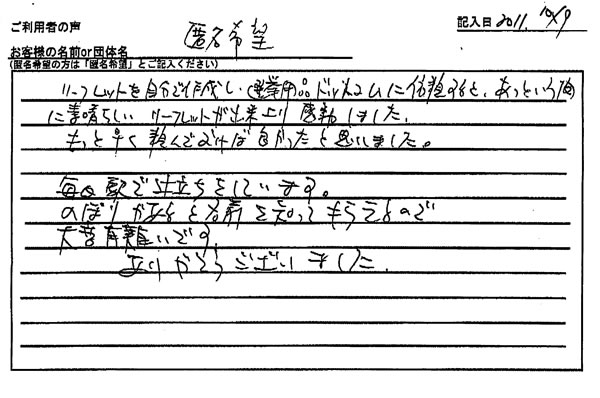 ご利用者の声
匿名希望
記入日 2011. 10/9
お客様の名前or団体名
(匿名希望の方は「匿名希望」とご記入ください)
リーフレットを自分で作成し、選挙用品ドットコムに依頼すると、あっという間
に素晴らしいリーフレットが出来上り感動しました。
もっと早く頼んでおけば良かったと思いました。
毎日駅で辻立ちをしています。
のぼりがあると名前を知ってもらえるので
大変有難いです。
ありがとうございました。